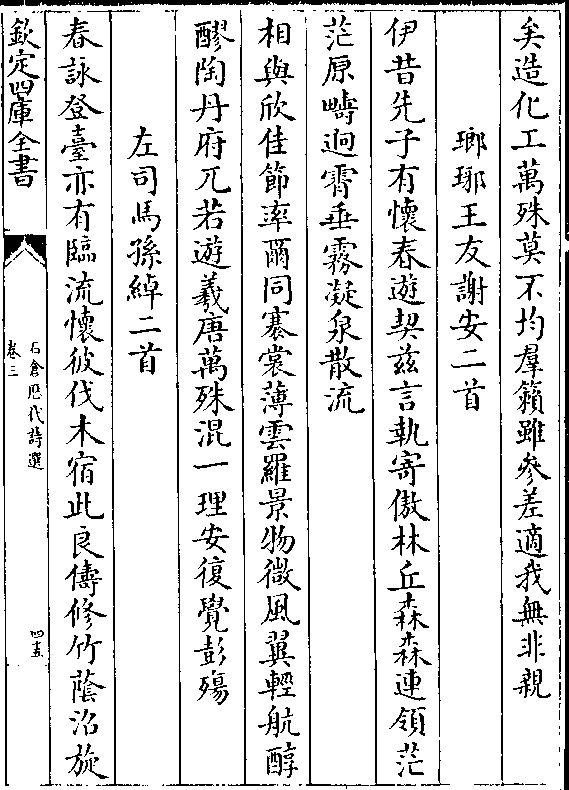 矣造化工萬殊莫不均羣籟雖參差適我無非親
瑯琊王友謝安二首
伊昔先子有懷春遊契茲言執寄傲林丘森森連領茫
茫原疇迥霄垂霧凝泉散流
相與欣佳節率爾同褰裳薄雲羅景物微風翼輕航醇
醪陶丹府兀若遊羲唐萬殊混一理安復覺彭殤
左司馬孫綽二首
春詠登臺亦有臨流懷彼伐木宿此良儔修竹蔭沼旋
欽定四庫全書
石倉歷代詩選
卷三
四十五